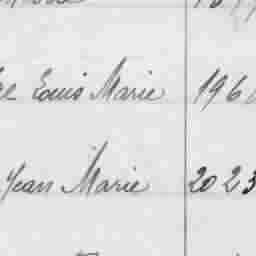 Louis Marie 196
Jean Marie 2023